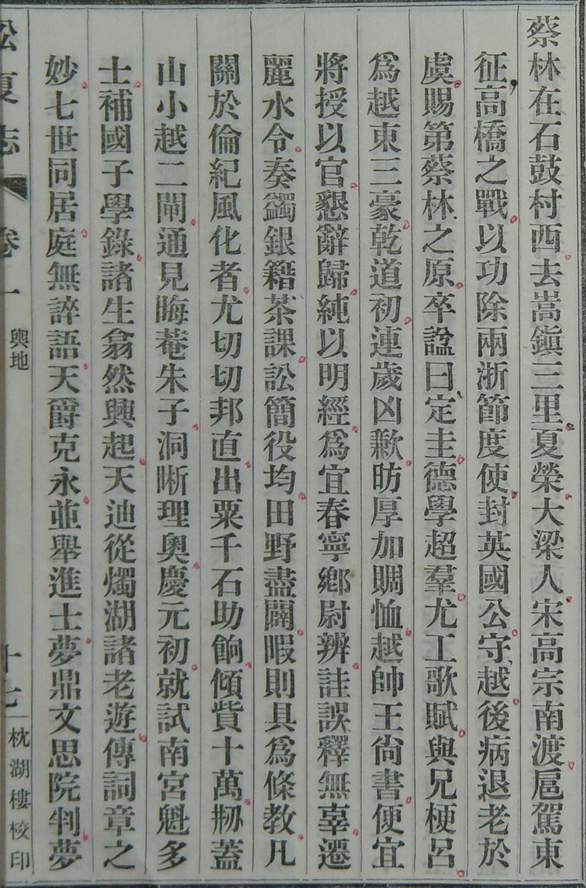 蔡林在石鼓村西去嵩鎮三里夏榮大梁人宋高宗南渡扈駕東
征高橋之戰以功除兩浙節度使封英國公守越後病退老於
虞賜第蔡林之原卒諡曰定圭德學超羣尤工歌賦與兄梗呂
爲越東三豪乾道初連歲凶歉昉厚加賙恤越帥王尙書便宜
將授以官懇辭歸純以明經爲宜春寧鄉尉辨詿誤釋無辜遷
麗水令奏蠲銀籍茶課訟簡役均田野盡闢暇則具爲條敎凡
關於倫紀風化者尤切切邦直出粟千石助餉傾貲十萬剏蓋
山小越二閘通見晦菴朱子洞晣理奧慶元初就試南宮魁多
士補國子學錄諸生翕然興起天迪從燭湖諸老遊傳詞章之
妙七世同居庭無誶語天爵克永並舉進士夢鼎文思院判夢
松夏志 卷一 輿地 十七 枕湖樓校印